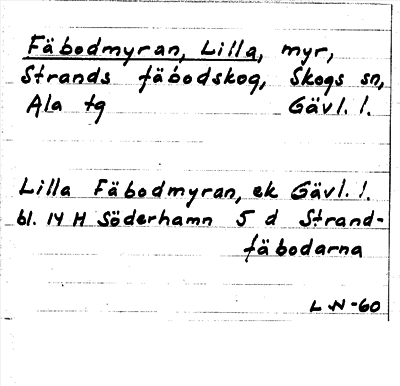 Fäbodmyran, Lilla, myr,
Strands fäbodskog, Skogs sn,
Ala tg Gävl. l.
Lilla Fäbodmyran, ek Gävl. l.
bl. 14 H Söderhamn 5 d Strand-
fäbodarna
L N-60